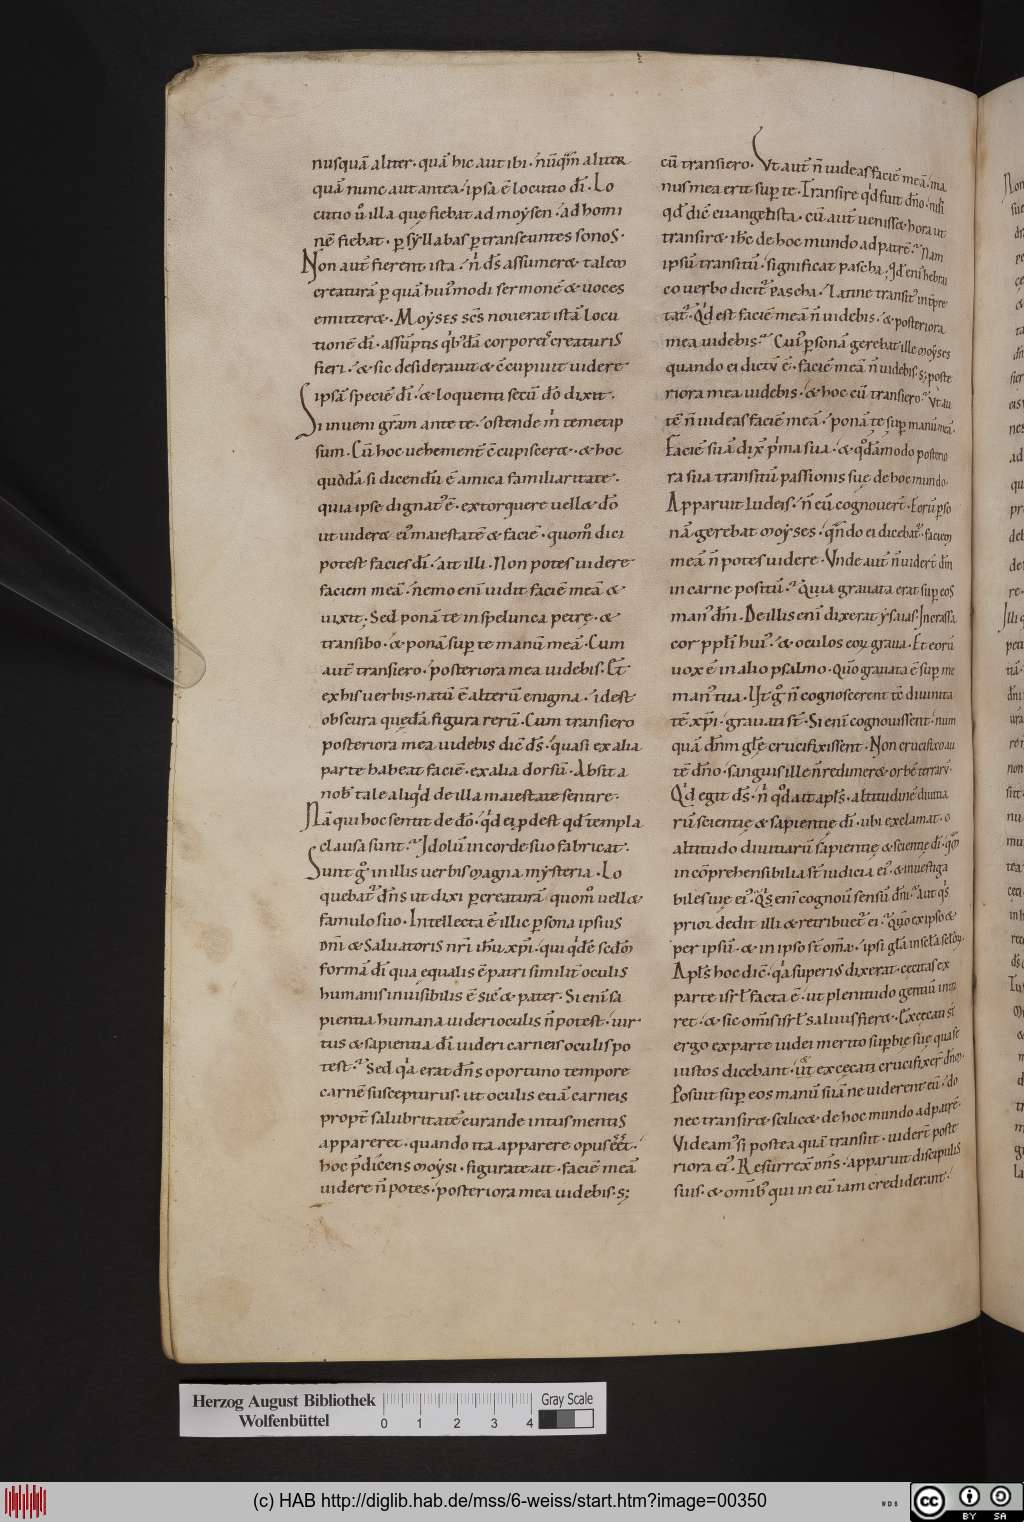 nusquā aliter · quā hic aut ibi · nūqͣm aliter
quā nunc aut antea · ipsa ē locutio dī · Lo
cutio ū illa que fiebat ad moẏsen · ad homi
nē fiebat · ꝑ sẏllabas ꝑ transeuntes sonoS ·
Non aut̄ fierent ista · n̄ ds̄ assumer& tale
creaturā ꝑ quā hui᾽modi sermonē & uoces
emitter& · Moẏses sc̄s nouerat istā locu
tionē dī · assūptis qͥb᾽dā corporeis creaturiS
fieri · & sic desiderauit & cc̄upiuit uidere
ipsā speciē dī · & loquenti secū dō dixit ·
Si inueni grām ante te · ostende m̄ temetip
sum · Cū hoc uehement̄ c̄cupiscer& · & hoc
quodā si dicendū ē amica familiaritate ·
quia ipse dignat᾽ ē · extorquere uell& dō
ut uider& ei᾽ maiestatē & faciē · quom̄ dici
potest facies dī · ait illi · Non potes uidere
faciem meā · nemo enī uidit faciē meā &
uixit · Sed ponā te in spelunca petrę · &
transibo · & ponā suꝑ te manū meā · Cum
aut̄ transiero · posteriora mea uidebis · Et
ex his uerbis natū ē alterū enigma · id est
obscura quedā figura rerū · Cum transiero
posteriora mea uidebis dic̄ ds̄ · quasi ex alia
parte habeat faciē · ex alia dorsū · Absit a
nob᾽ tale aliqͥd de illa maiestate sentire ·
Nā qui hoc sentit de dō · qͥd ei ꝓdest qd̄ templa
clausa sunt · Jdolū in corde suo fabricat ·
Sunt gͦ in illis uerbis magna mẏsteria · Lo
quebat᾽ dn̄s ut dixi ꝑ creaturā quom̄ uell&
famulo suo · Intellecta ē illic ꝑsona ipsiuS
dn̄i & SaluatoriS nr̄i ih̄u xp̄i · qui qͥdē scd̄m
formā dī qua equalis ē patri similit̄ oculiS
humanis inuisibilis ē sic̄ & pater · Si enī sa
pientia humana uideri oculis n̄ potest · uir
tus & sapientia dī uideri carneis oculis po
test · Sed qͥa erat dn̄s oportuno tempore
carnē suscepturus · ut oculis etiā carneis
propt̄ salubritatē curande intus mentiS
appareret · quando ita apparere opus eēt ·
hoc p̄dicens moẏsi · figurate ait · faciē meā
uidere n̄ potes · posteriora mea uidebis · s;
cū transiero · Vt aut̄ n̄ uideas faciē meā · ma
nus mea erit suꝑ te · Transire qͥd fuit dn̄o · nisi
qd̄ dic̄ euangelista · cū aut̄ uenisset hora ut
transir& · ih̄c de hoc mundo ad patrē · Nam
ipsū transitū · significat pascha · Jd̄ enī hebrai
co uerbo dicit᾽ pascha · Latine transit᾽ int̄pre
tat᾽ · Qͥd est faciē meā n̄ uidebis · & posteriora
mea uidebis · Cui᾽ ꝑsonā gerebat ille moẏses
quando ei dictū ē · faciē meā n̄ uidebis · s; poste
riora mea uidebis · & hoc cū transiero · Vt au
tē n̄ uideas faciē meā · ponā te suꝑ manū meā ·
Faciē suā dix̄ pͥma sua · & qͦdāmodo posterio
ra sua transitū passionis sue de hoc mundo ·
Apparuit Iudeis · n̄ eū cognouer̄t · Eorū ꝑso
nā gerebat moẏses · qn̄do ei dicebat᾽ · faciem
meā n̄ potes uidere · Vnde aut̄ n̄ uidert̄ dn̄m
in carne positū · Quia grauata erat suꝑ eos
man᾽ dn̄i · De illis enī dixerat ẏsaias · Jncrassa
cor ppl̄i hui᾽ · & oculos eoꝝ graua · Et eorū
uox ē in alio psalmo · Quō grauata ē suꝑ me
man᾽ tua · Ut gͦ n̄ cognoscerent tc̄ diuinita
tē xp̄i · grauati st̄ · Si enī cognouissent · num
quā dn̄m glę̄ crucifixissent · Non crucifixo au
tē dn̄o · sanguis ille n̄ redimer& · orbē terrarū ·
Qͥd egit ds̄ · n̄ qͦd ait apl̄s · altitudinē diuitia
rū scientie & sapientie dī · ubi exclamat · o
altitudo diuitiarū sapientię & scientię dī · qͣm
incōprehensibilia st̄ iudicia ei᾽ · & inuestiga
biles uię ei᾽ · Qͥs enī cognouit sensū dn̄i · aut qͥs
prior dedit illi & retribuet᾽ ei · Qm̄ ex ipso &
per ipsū · & in ipso st̄ om̄a · ipsi glā in scl̄a scl̄oꝝ ·
Apl̄s hoc dic̄ · qͥa superiS dixerat · cecitas ex
parte isrl̄ facta ē · ut plenitudo gentiū int
ret · & sic om̄is isrl̄ saluus fier& · Excecati st̄
ergo ex parte iudei merito suꝑbię suę quasi
iustos dicebant · ut excecati crucifixer̄ dn̄m ·
Posuit suꝑ eos manū suā ne uiderent eū · do
nec transir& scilic& de hoc mundo ad patrē ·
Videam᾽ si postea quā transiit · uidert̄ poste
riora ei᾽ · Resurrex̄ dn̄s · apparuit discipuliS
suis · & omīb᾽ qui in eū iam crediderant ·
Herzog August Bibliothek
Wolfenbüttel
0 1 2 3 4
Gray Scale
(c) HAB http://diglib.hab.de/mss/6-weiss/start.htm?image=00350
cc BY SA